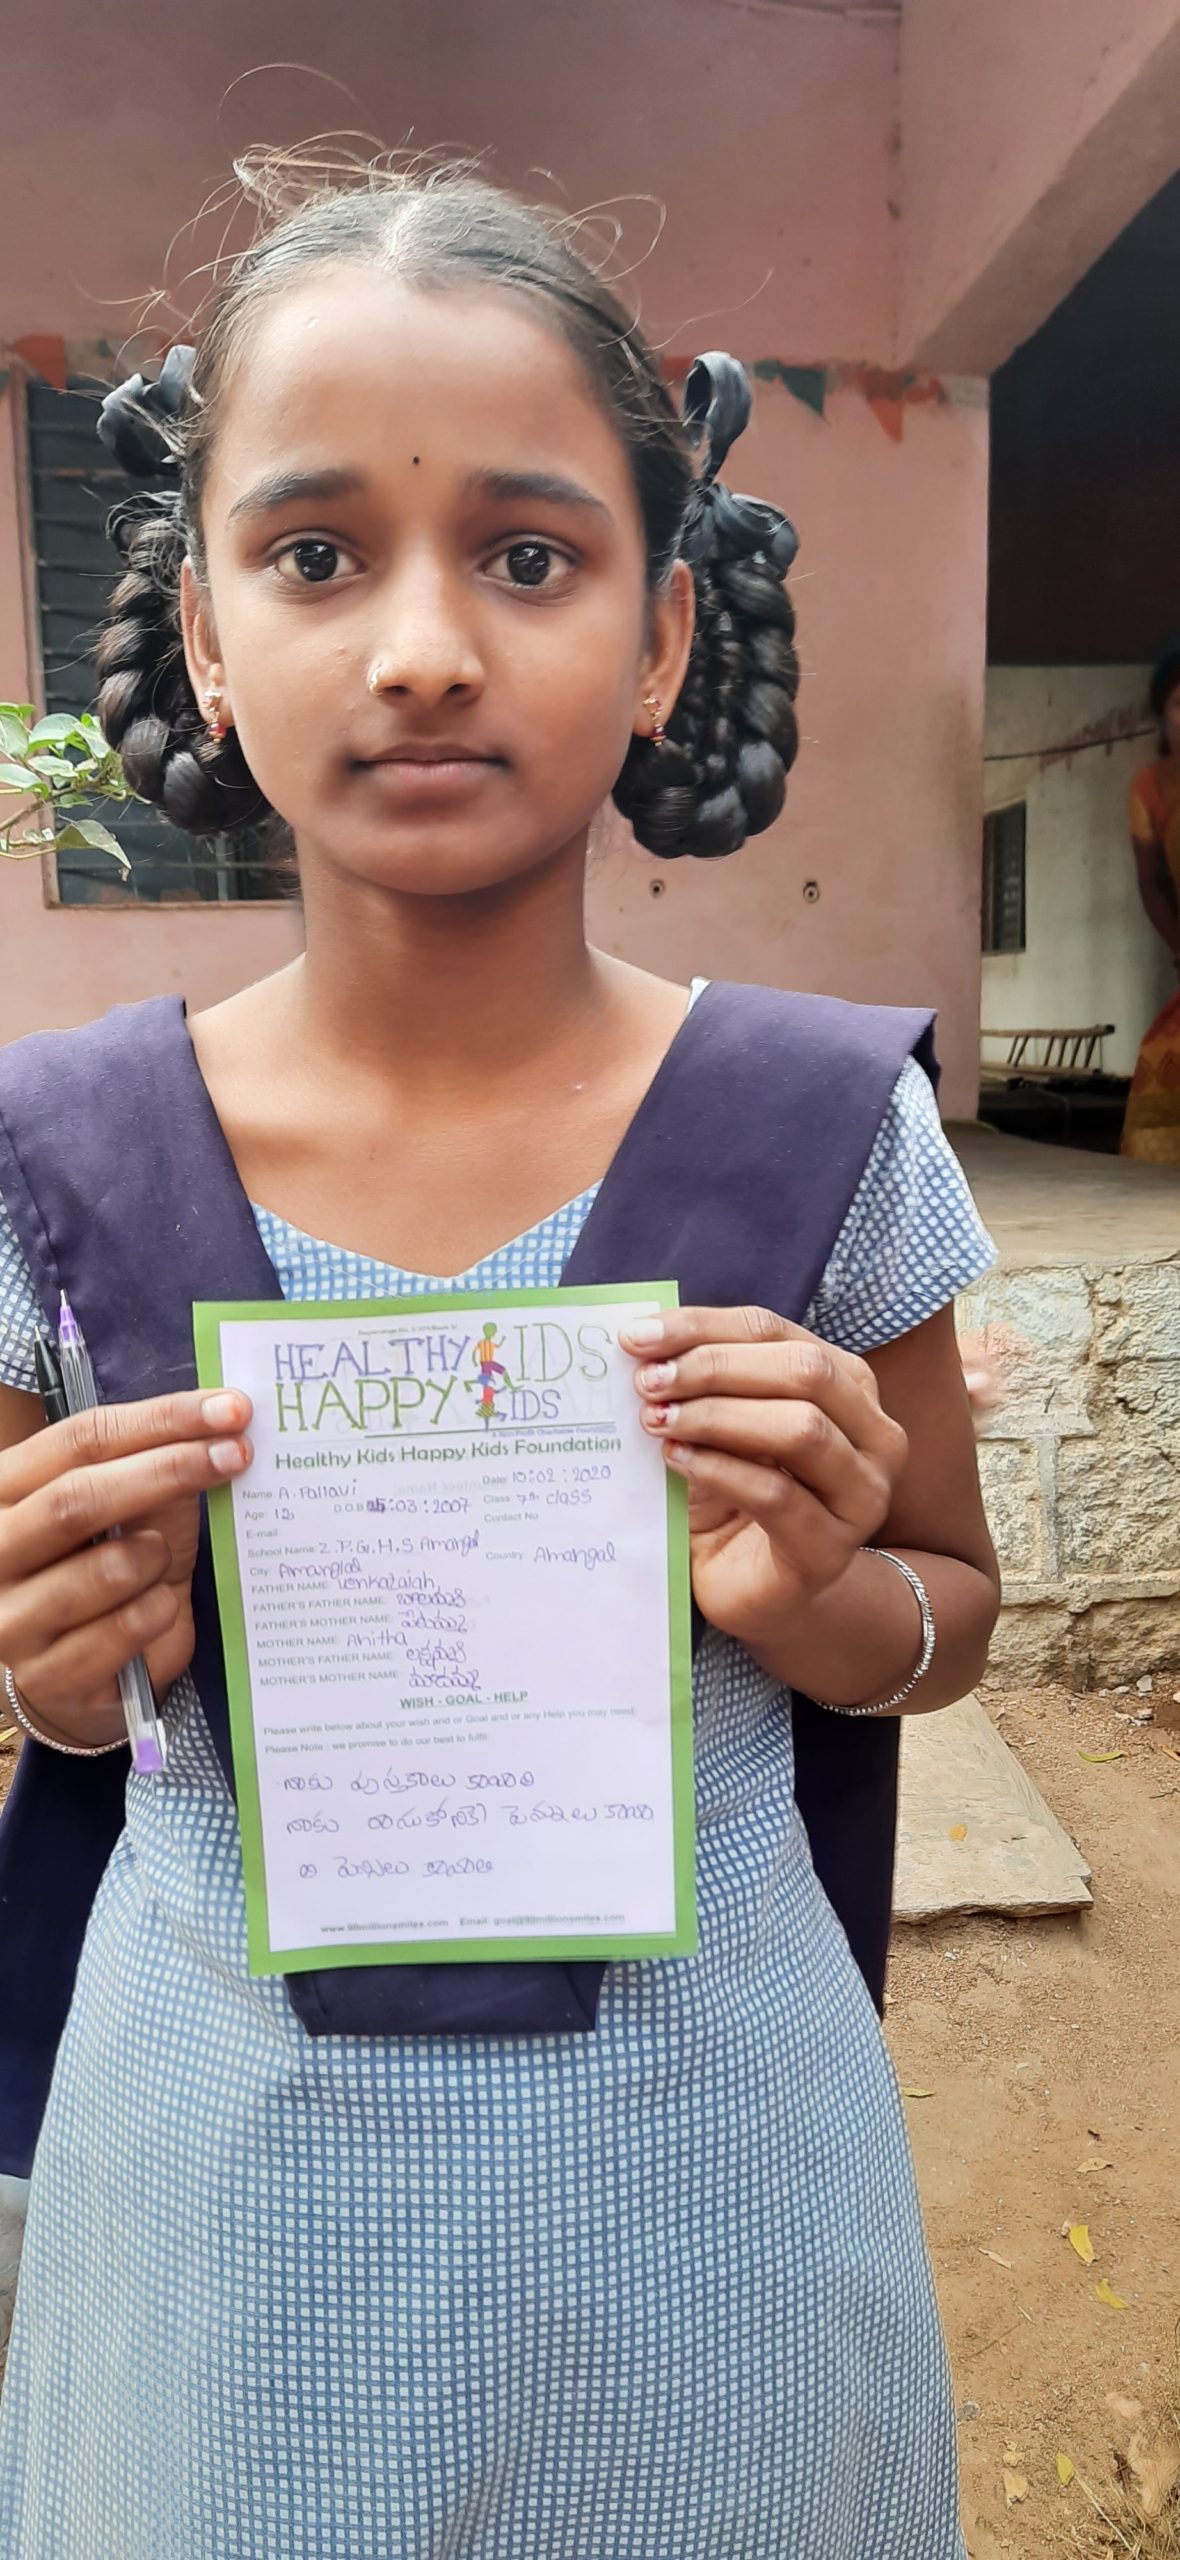 HEALTHY KIDS
HAPPY KIDS
A Non-Profit Charitable Foundation
Healthy Kids Happy Kids Foundation
Date: 10:02:2020
Name: A. Pallavi
Age: 12 D.O.B :03:2007 Class: 7th class
E-mail: Contact No
School Name: Z.P.G.H.S Amangal
City: Country: Amangal
FATHER NAME: Venkataiah
FATHER'S FATHER NAME:
FATHER'S MOTHER NAME:
MOTHER NAME: Anitha
MOTHER'S FATHER NAME:
MOTHER'S MOTHER NAME:
WISH - GOAL - HELP
Please write below about your wish and or Goal and or any Help you may need:
Please Note : we promise to do our best to fulfil
నాకు పుస్తకాలు కావాలి
నాకు పెన్నులు కావాలి
కావాలి
www.90millionsmiles.com Email: goal@90millionsmiles.com